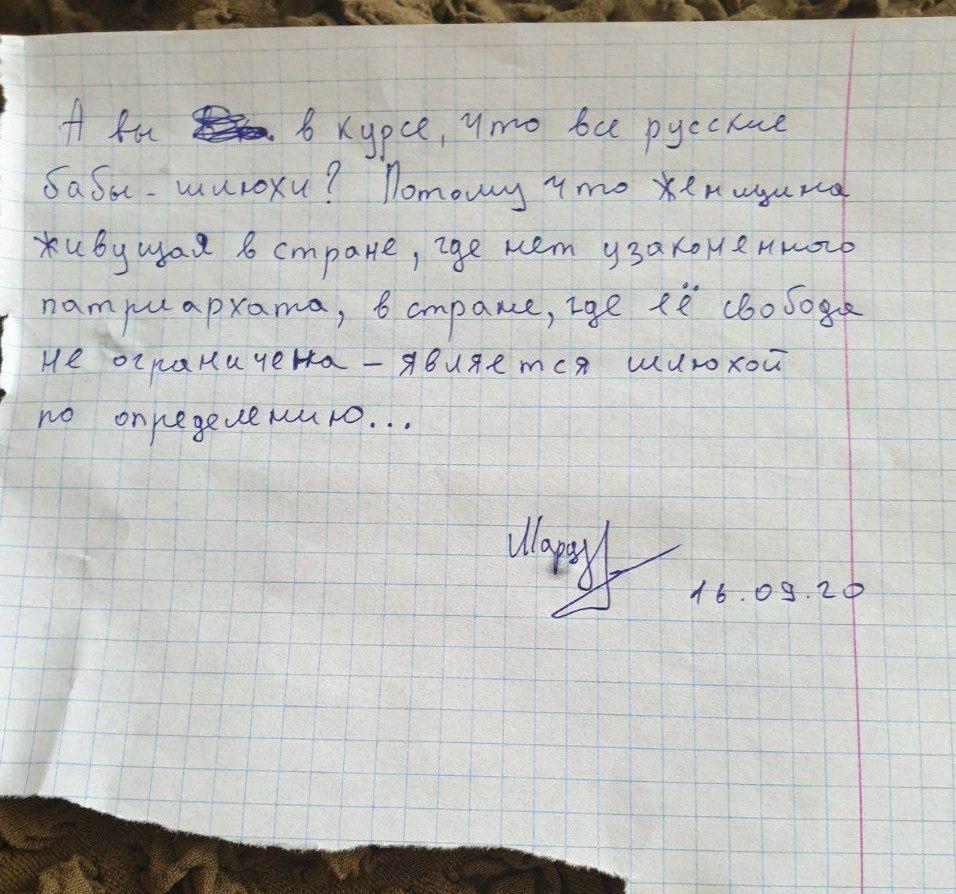 А вы в курсе, что все русские
бабы - шлюхи? Потому что женщина
живущая в стране, где нет узаконенного
патриархата, в стране, где её свобода
не ограничена – является шлюхой
по определению...
16.09.20